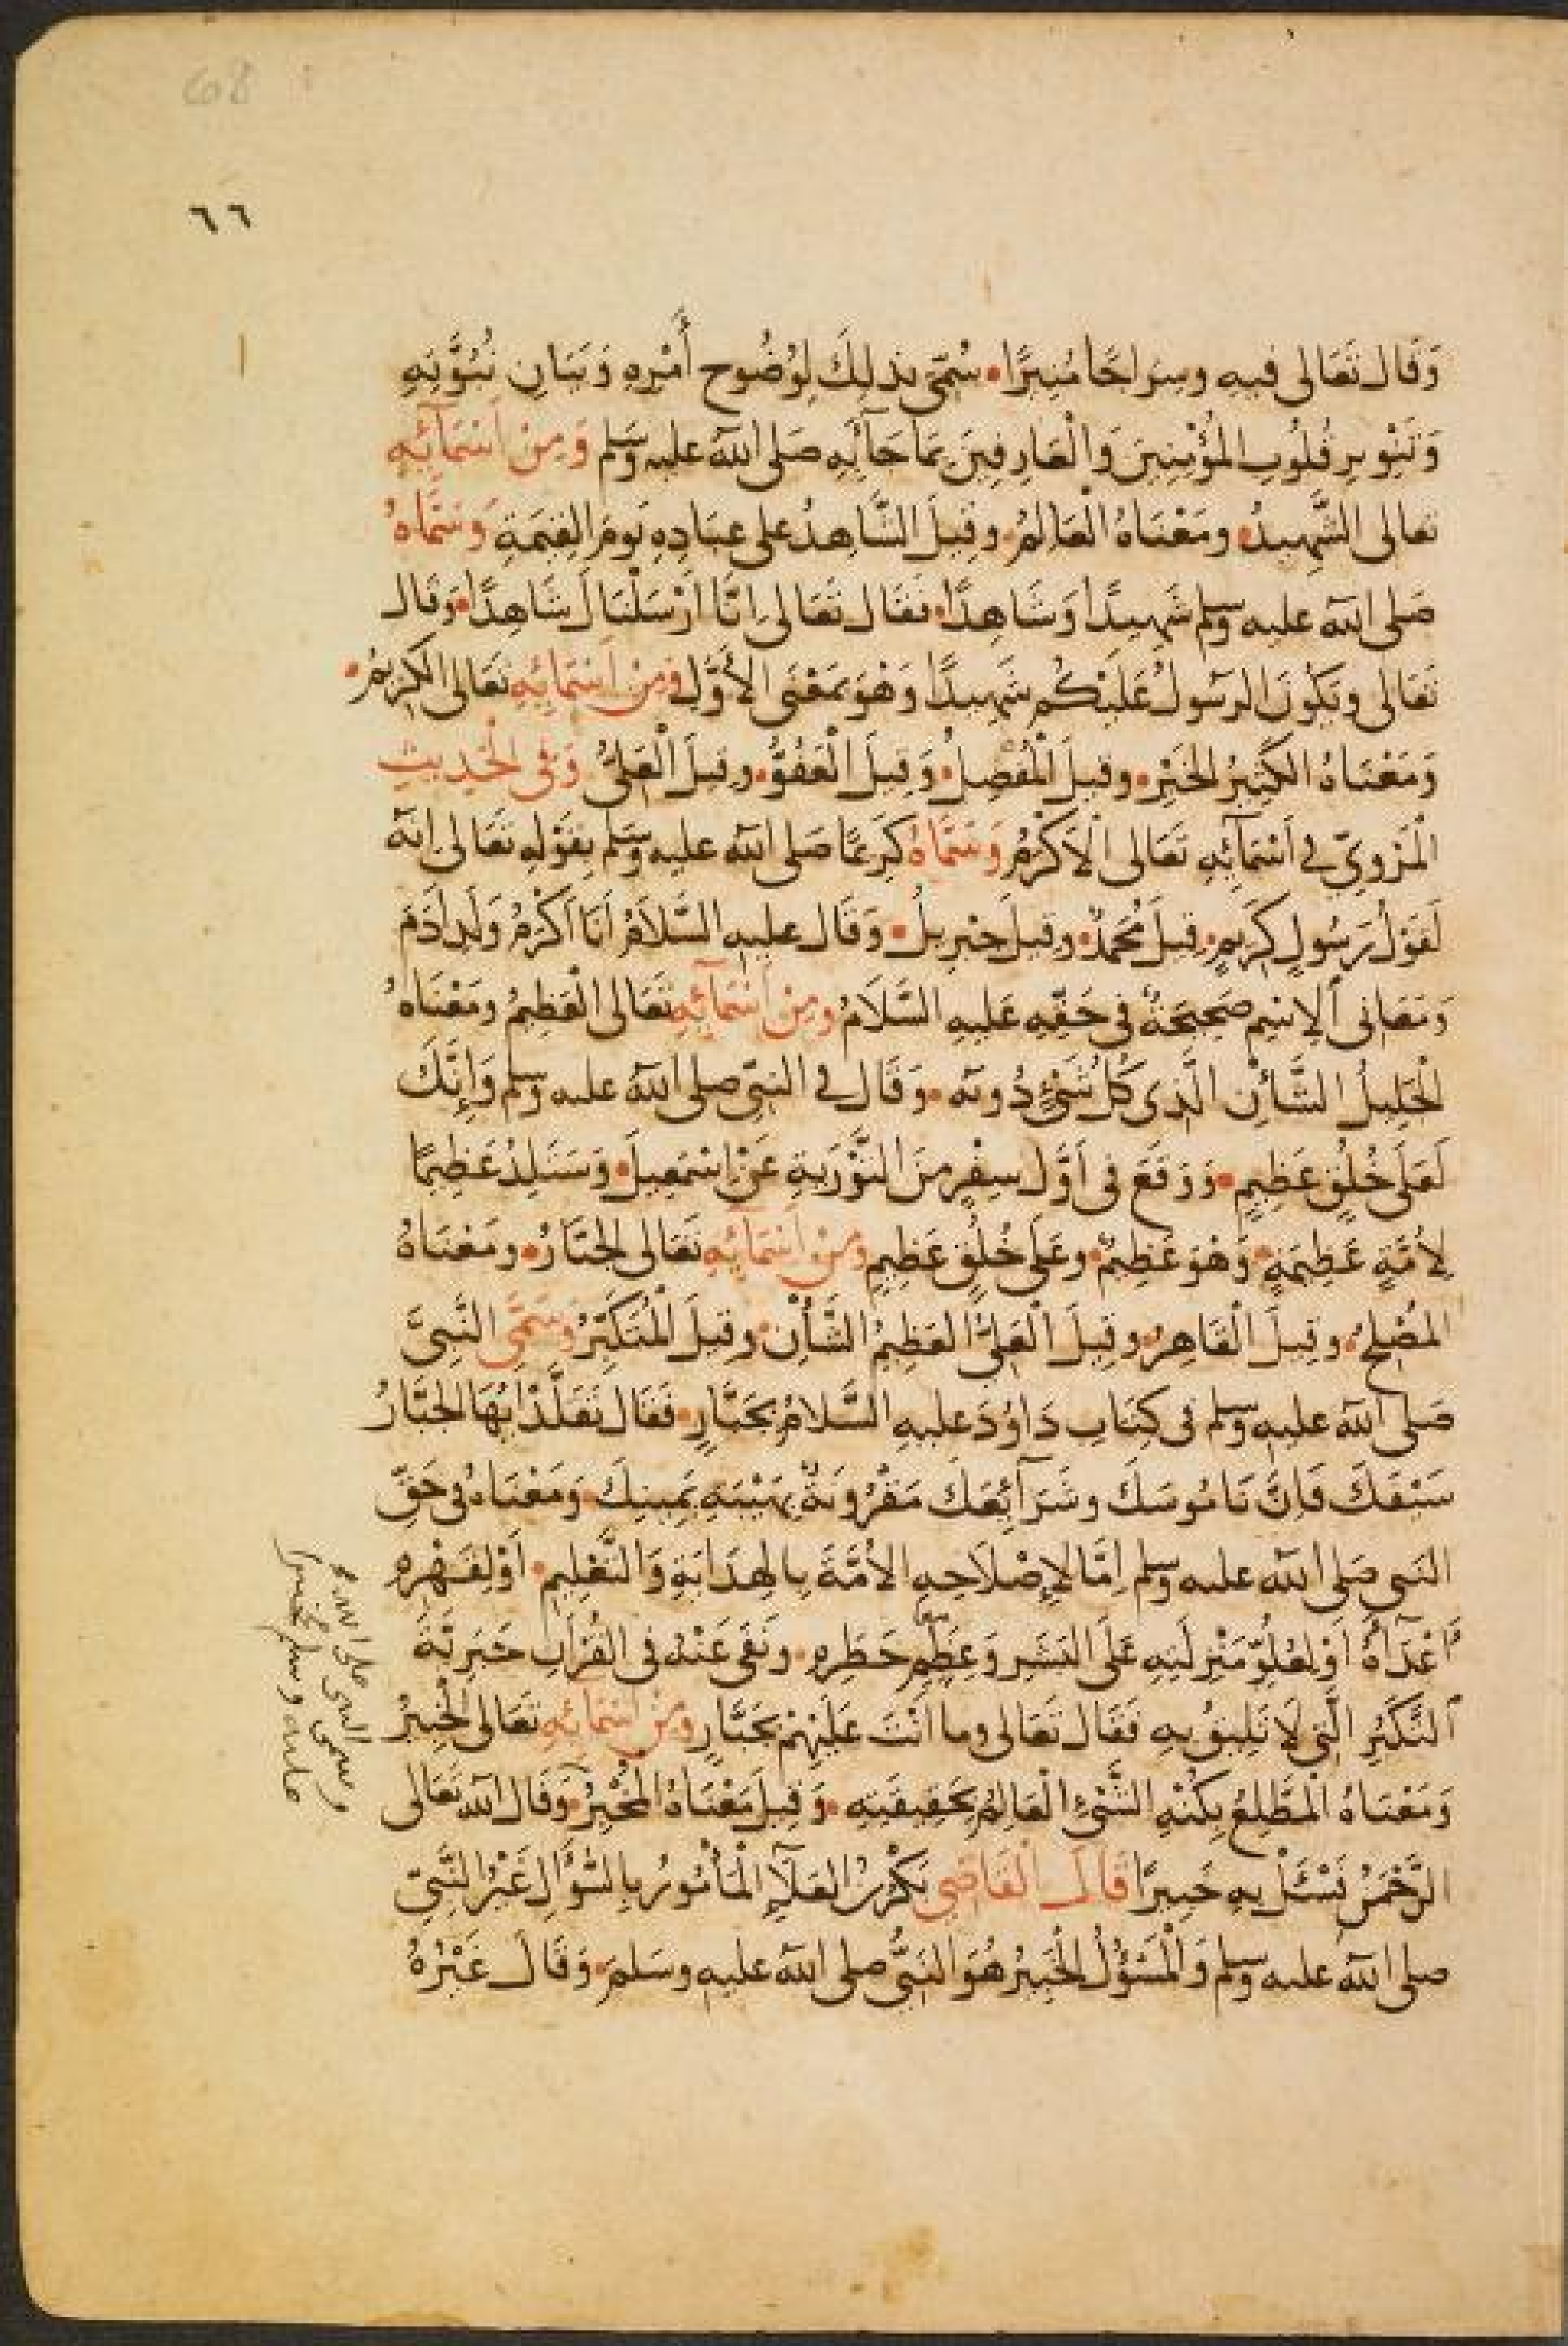 68
٦٦
وَقَالَ تَعَالَى فيهِ وسِرَاجًا مُنِيرًا سُمِّىَ بذلِكَ لِوُضُوحِ أَمْرِهِ وَبَيَانِ نُبُوَّتِهِ
وَتَنْوِيرِ قُلُوبِ المُؤْمِنِينَ وَالْعَارِفِينَ بِمَا جَآءَ بِهِ صَلى الله عليه وسلم وَمِنْ أَسْمَآئِهِ
تعالى الشَّهِيدُ ومَعْنَاهُ الْعَالِمُ وقيلَ الشَّاهِدُ على عِبَادِهِ يَومَ القِيمَةِ وَسَمَّاهُ
صَلى الله عليه وسلم شَهِيدًا وَشَاهِدًا فَقَالَ تَعَالى اِنَّا أَرْسَلْنَاكَ شَاهِدًا وَقَالَ
تَعَالى ويَكُونَ الرسُولُ عَلَيْكُم شَهِيدًا وَهْوَ بمَعْنَى الأوَّلِ ومِنْ أَسْمَائِهِ تَعَالَى الكَرِيمُ
وَمَعْنَاهُ الكَثِيرُ الخَيْرِ وقيلَ الْمُفْضِلُ وَقِيلَ الْعَفُوُّ وقيلَ الْعَلِىُّ وَفى الْحَدِيثِ
الْمَرْوِيِّ في أَسْمَآئِهِ تَعَالى الْأَكْرَمُ وَسَمَّاهُ كَرِيمًا صَلى الله عليه وسلم بقَوْلِهِ تَعَالى إنّه
لَقَوْلُ رَسُولٍ كَرِيمٍ قيلَ مُحَمدٌ وقيلَ جبْرِيلُ وَقَالَ عليهِ السَّلَامُ أَنَا أَكْرَمُ وَلَدِ آدَمَ
وَمَعَانى الاِسْمِ صَحِيحَةٌ فى حَقِّهِ عَليهِ السَّلَامُ ومِنْ أَسْمَآئِهِ تَعَالى الْعَظِيمُ ومَعْنَاهُ
الْجَلِيلُ الشَّأْنِ الَّذِى كُلُّ شَىْءٍ دُونَه وَقَالَ في النبىّ صلى الله عليه وسلم وَإِنَّكَ
لَعَلَى خُلُقٍ عَظِيمٍ وَوَقَعَ فى أوَّلِ سِفْرٍ مِنَ التَّوْرَيةِ عَنْ اِسْمَعِيلَ وَسَتَلِدُ عَظِيمًا
لِأُمَّةٍ عَظِيمَةٍ وَهْوَ عَظِيمٌ وعَلَى خُلُقٍ عَظِيمٍ ومِنْ أَسْمَائِهِ تَعَالى الجَبَّارُ ومَعْنَاهُ
المُصْلِحُ وقِيلَ الْقَاهِرُ وقِيلَ الْعَلِىُّ العَظِيمُ الشَّأْنِ وقِيلَ الْمُتَكَبِّرُ وَسُمِّىَ النَّبِىُّ
صَلى الله عليه وسلم فى كِتَابِ دَاوُدَ عليهِ السَّلامُ بِجَبَّارٍ فَقَالَ تَقَلَّدْ أَيُّهَا الجَبَّارُ
سَيْفَكَ فَاِنَّ نَامُوسَكَ وشَرَآئِعَكَ مَقْرُونَةٌ بِهَيْبَةِ يَمِينِكَ وَمَعْنَاهُ فى حَقِّ
النَبى صَلى الله عليه وسلم اِمَّا لإِصْلَاحِهِ الأُمَّةَ بِالهِدَايَةِ وَالتَّعْلِيمِ أَوْلِقَهْرِهِ
أَعْدَآءَهُ أَوْلِعُلُوِّ مَنْزِلَتِهِ عَلَى البَشَرِ وَعِظَمِ خَطَرِهِ وَنَفَى عَنْهُ فى القُرْآنِ جَبْرِيَّةَ
التَّكَبُّرِ الَّتى لَا تَلِيقُ بِهِ فَقَالَ تَعَالى وما أَنْتَ عَلَيْهِمْ بِجَبَّارٍ ومِنْ أَسْمَائِهِ تَعَالى الْخَبِيرُ
وَمَعْنَاهُ الْمُطَّلِعُ بِكُنْهِ الشَّىْءِ الْعَالِمُ بِحَقِيقَتِهِ وَقِيلَ مَعْنَاهُ الْمُخْبِرُ وَقَالَ الله تَعَالى
الرَّحْمَنُ فَسْئَلْ بِهِ خَبِيرًا قَالَ الْقَاضِي بَكْرُ بْنُ العَلَآءِ الْمَأْمُورُ بِالسُّؤَالِ غَيْرُ النَّبِيِّ
صلى الله عليه وسلم وَالْمَسْؤُلُ الْخَبِيرُ هُوَ النَبىُّ صلى الله عليه وسَلمَ وَقَالَ غَيْرُهُ
وسمى النبى صلى الله
عليه وسلم